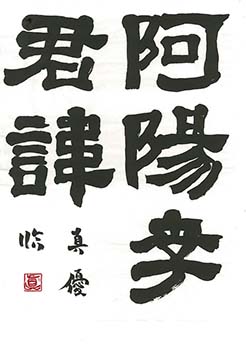 阿陽李
君諱
真優
臨
真